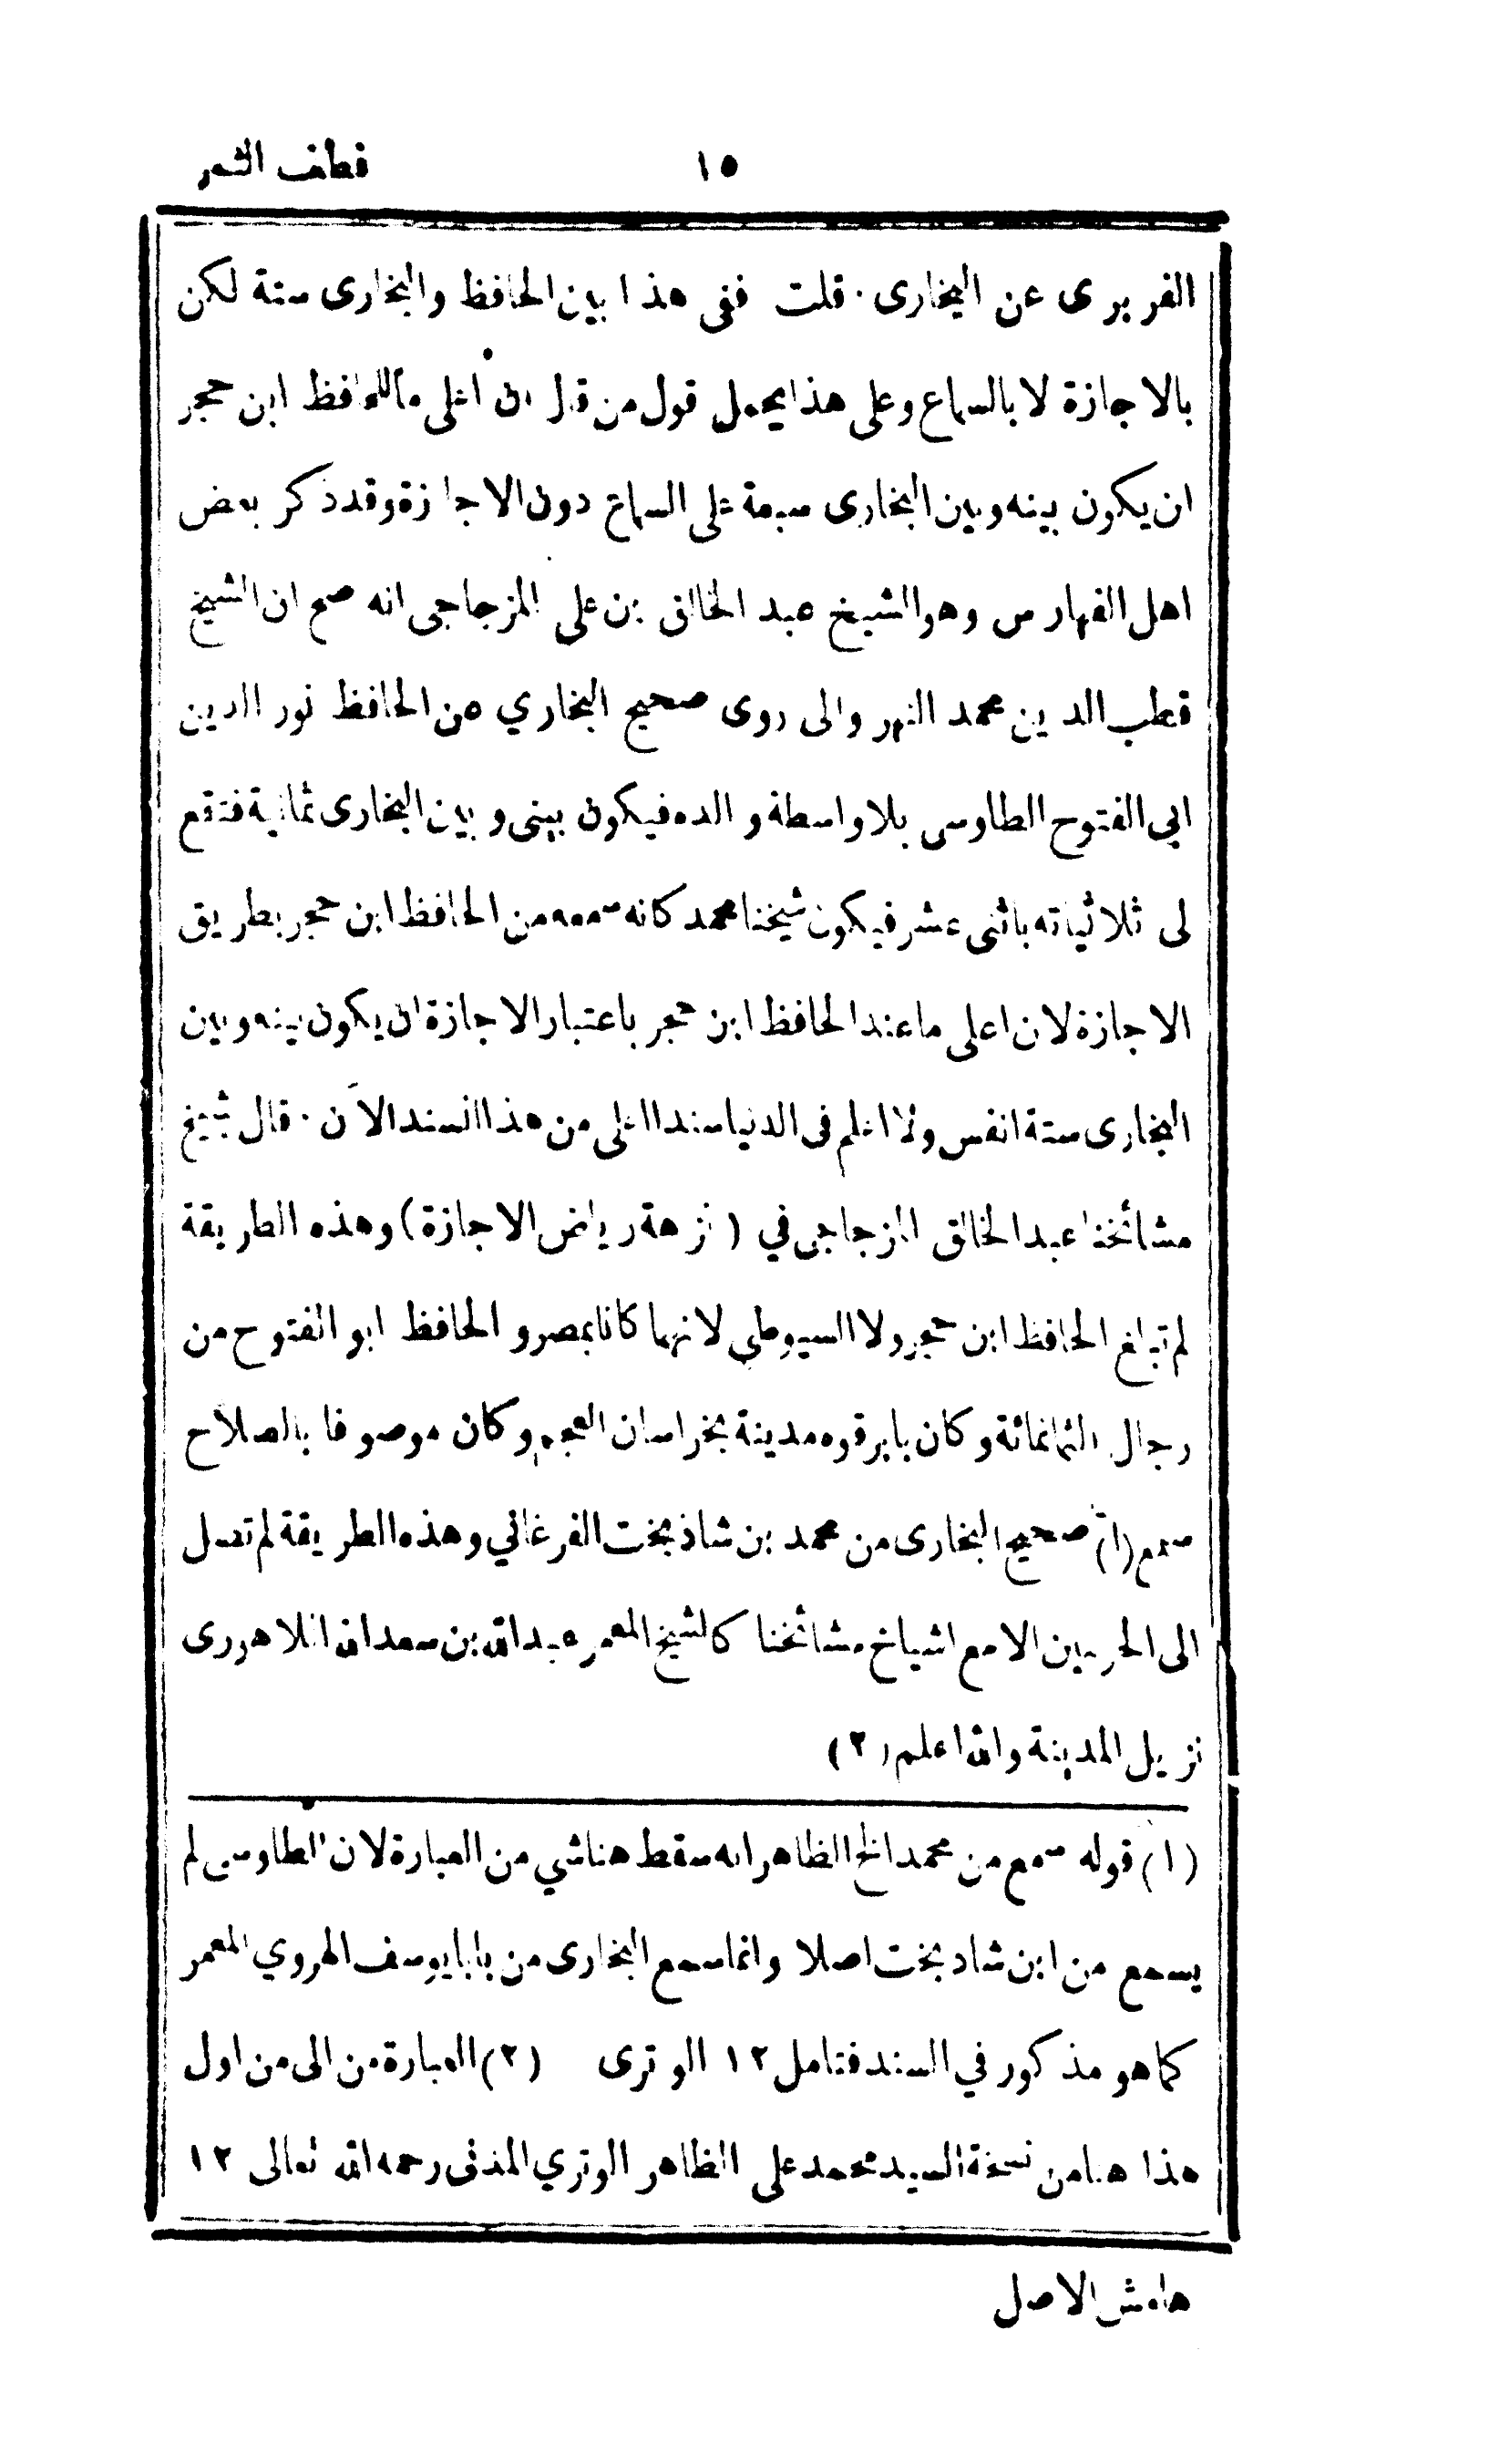 ١٥ قطف الثمر
الفربرى عن البخارى . قلت ففى هذا بين الحافظ والبخارى ستة لكن
بالاجازة لا بالسماع وعلى هذا يحمل قول من قال ان اعلى ما للحافظ ابن حجر
ان يكون بينه وبين البخارى سبعة على السماع دون الاجازة وقد ذكر بعض
اهل الفهارس وهو الشيخ عبد الخالق بن على المزجاجى انه صح ان الشيخ
قطب الدين محمد النهروالى روى صحيح البخاري عن الحافظ نور الدين
ابى الفتوح الطاوسى بلا واسطة والده فيكون بينى وبين البخارى ثمانية فتقع
لى ثلاثياته باثنى عشر فيكون شيخنا محمد كانه سمعه من الحافظ ابن حجر بطريق
الاجازة لان اعلى ما عند الحافظ ابن حجر باعتبار الاجازة ان يكون بينه وبين
البخارى ستة انفس ولا اعلم فى الدنيا سندا اعلى من هذا السند الآن . قال شيخ
مشائخنا عبد الخالق المزجاجى في ( نزهة رياض الاجازة ) وهذه الطريقة
لم تبلغ الحافظ ابن حجر ولا السيوطي لانهما كانا بمصر والحافظ ابو الفتوح من
رجال الثمانمائة وكان بابرقوه مدينة بخراسان العجم وكان موصوفا بالصلاح
سمع (١) صحيح البخارى من محمد بن شاذ بخت الفرغاني وهذه الطريقة لم تصل
الى الحرمين الا مع اشياخ مشائخنا كالشيخ المعمر عبد الله بن سعد الله اللاهورى
نزيل المدينة والله اعلم (٢)
(١) قوله سمع من محمد الخ الظاهر انه سقط هنا شي من العبارة لان الطاوسى لم
يسمع من ابن شاد بخت اصلا وانما سمع البخارى من بابا يوسف الهروي المعمر
كما هو مذكور في السند فتامل ١٢ الوترى (٢) العبارة من الى من اول
هذا هنا من نسخة السيد محمد على الظاهر الوتري المدنى رحمه الله تعالى ١٢
هامش الاصل